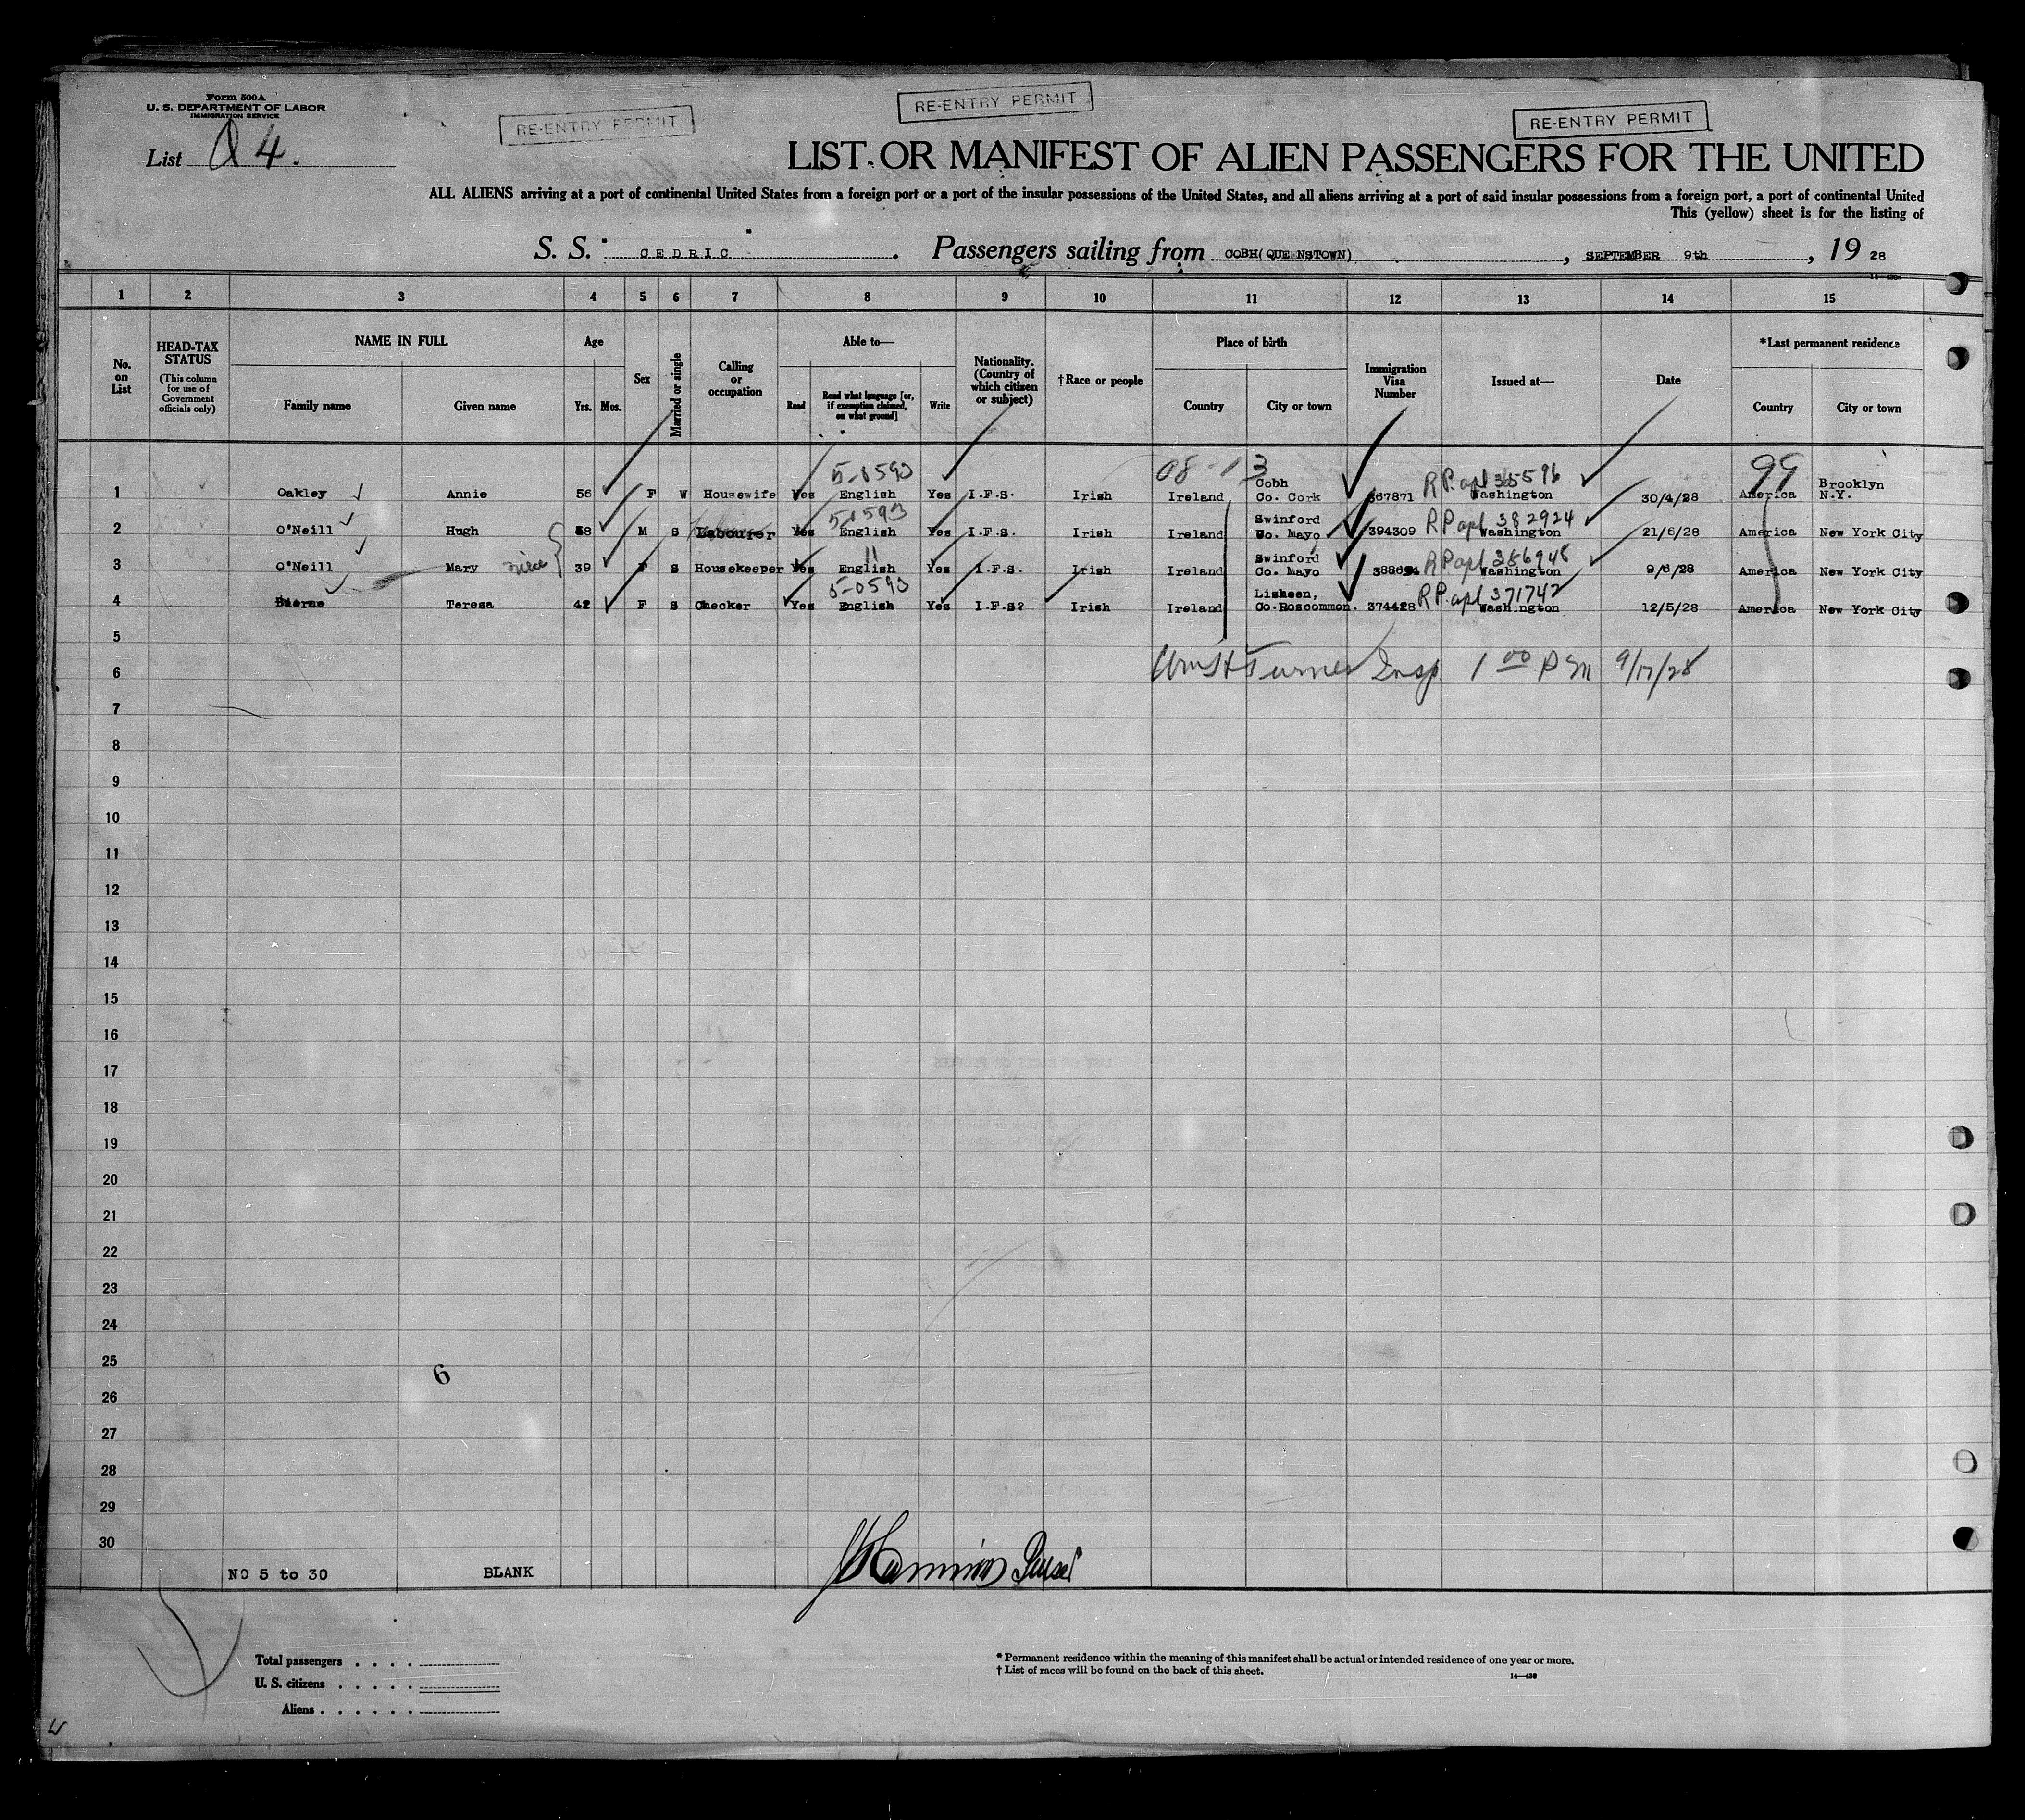 Form 500A
U. S. DEPARTMENT OF LABOR
IMMIGRATION SERVICE
RE-ENTRY PERMIT RE-ENTRY PERMIT RE-ENTRY PERMIT
List Q 4.
LIST OR MANIFEST OF ALIEN PASSENGERS FOR THE UNITED
ALL ALIENS arriving at a port of continental United States from a foreign port or a port of the insular possessions of the United States, and all aliens arriving at a port of said insular possessions from a foreign port, a port of continental United
This (yellow) sheet is for the listing of
S. S. CEDRIC. Passengers sailing from COBH(QUE NSTOWN), SEPTEMBER 9th, 19 28
1 2 3 4 5 6 7 8 9 10 11 12 13 14 15
No. on List
HEAD-TAX STATUS
(This column for use of Government officials only)
NAME IN FULL
Family name Given name
Age
Yrs. Mos.
Sex
Married or single
Calling or occupation
Able to—
Read Read what language [or, if exemption claimed, on what ground] Write
Nationality. (Country of which citizen or subject)
†Race or people
Place of birth
Country City or town
Immigration Visa Number
Issued at—
Date
*Last permanent residence
Country City or town
5-0593 08-13 RP. apl 99
1 Oakley Annie 56 F W Housewife Yes English Yes I.F.S. Irish Ireland Cobh Co. Cork 367871 Washington 30/4/28 America Brooklyn N.Y.
5-0593 R.P. apl 382924
2 O'Neill Hugh 38 M S Labourer Yes English Yes I.F.S. Irish Ireland Swinford Co. Mayo 394309 Washington 21/6/28 America New York City
" R.P. apl
3 O'Neill Mary niece 39 F S Housekeeper Yes English Yes I.F.S. Irish Ireland Swinford Co. Mayo Washington 9/6/28 America New York City
5-0593 R.P. apl 371742
4 Teresa 42 F S Checker Yes English Yes I.F.S? Irish Ireland Lisheen, Co.Roscommon. 374428 Washington 12/5/28 America New York City
5
6 Wm H Turner Insp 1 00 P M 9/17/28
7
8
9
10
11
12
13
14
15
16
17
18
19
20
21
22
23
24
25
6
26
27
28
29
30
NO 5 to 30 BLANK
Purser
Total passengers . . . .
U. S. citizens . . . . .
Aliens . . . . . .
* Permanent residence within the meaning of this manifest shall be actual or intended residence of one year or more.
† List of races will be found on the back of this sheet.